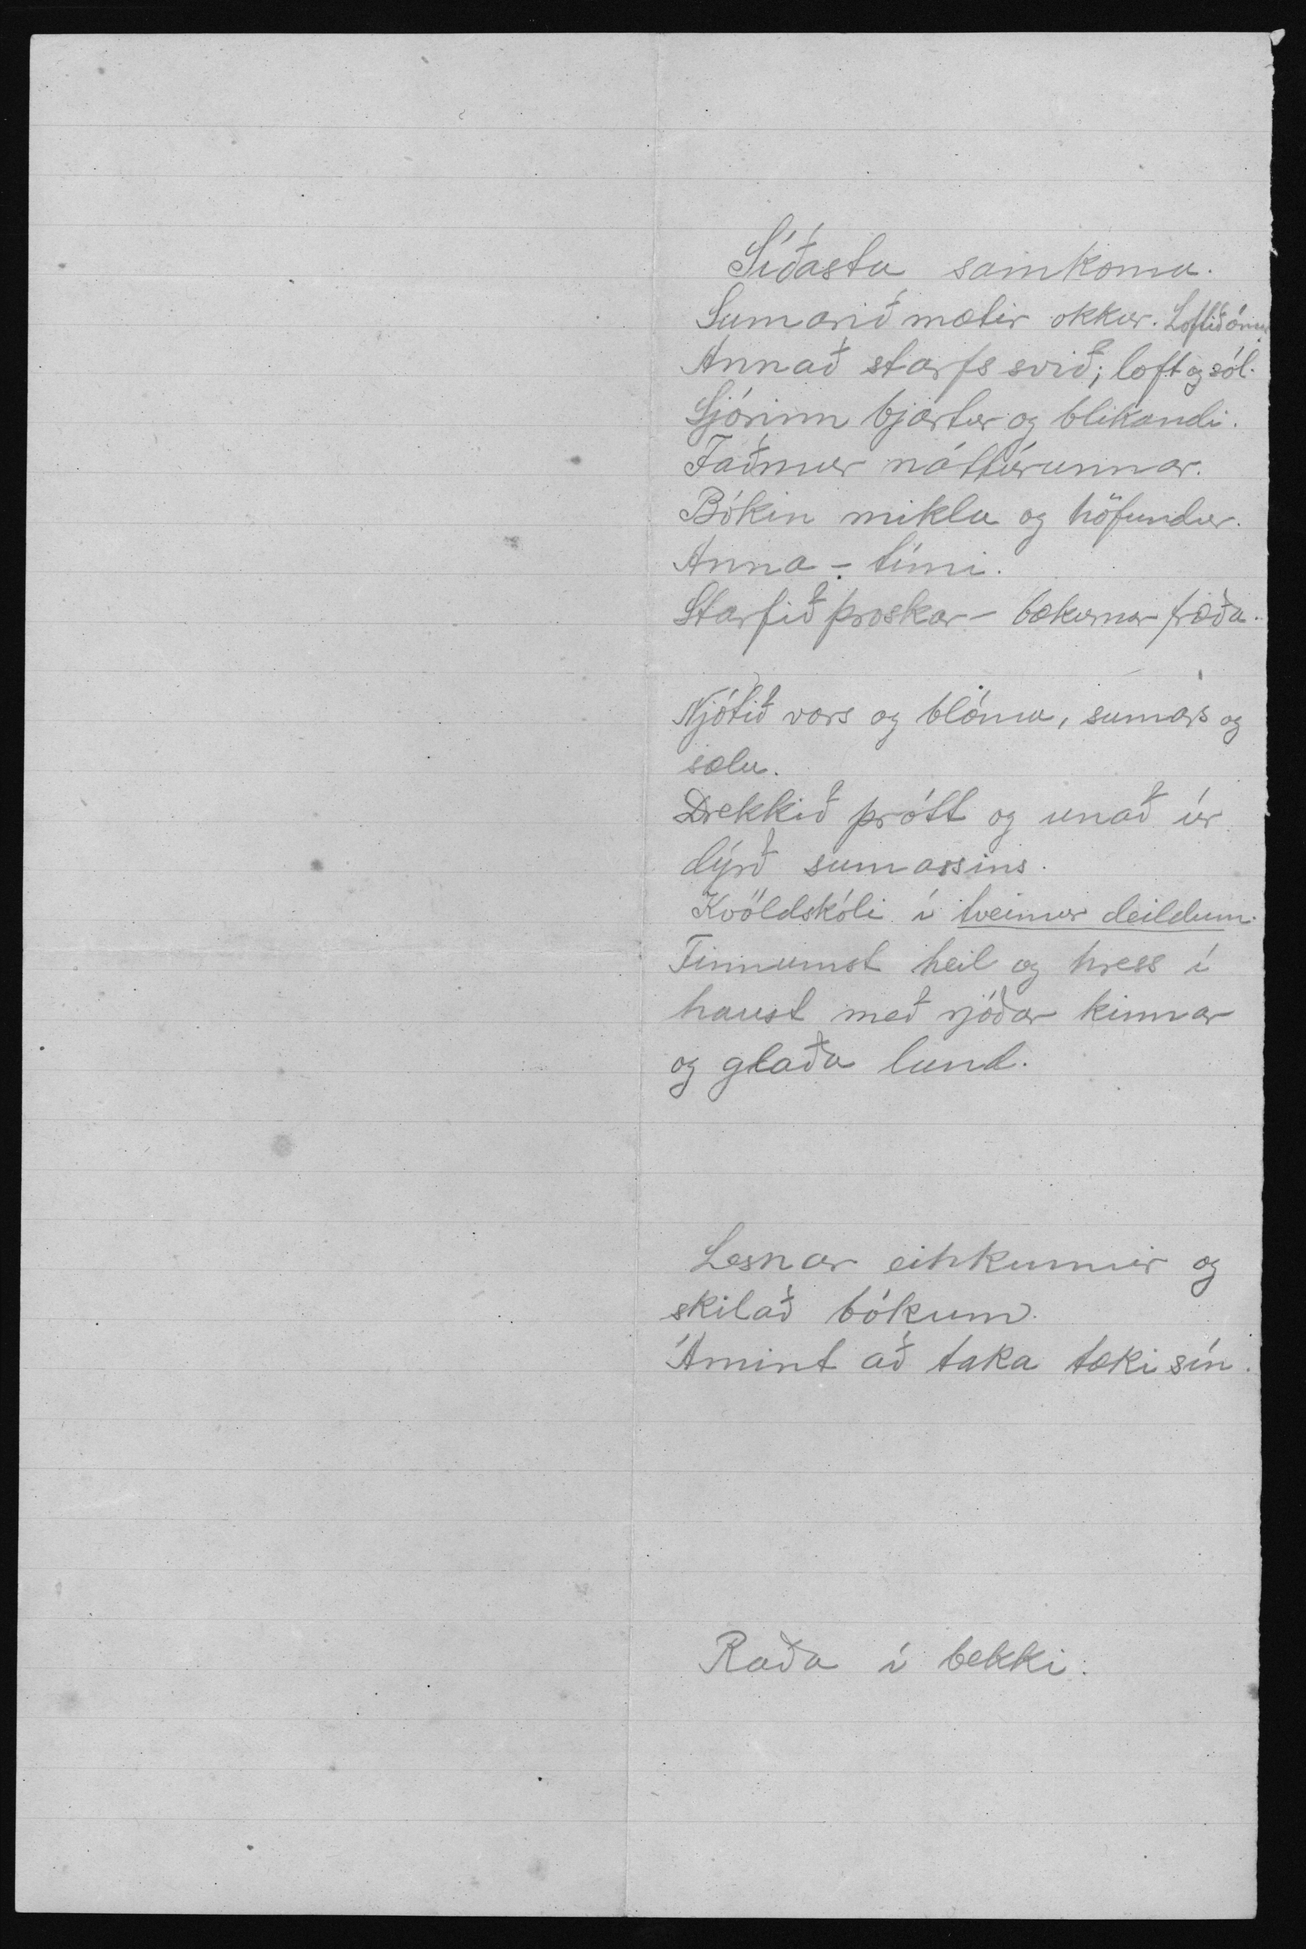 Síðasta samkoma.
Sumarið mætir okkur. Loftið ómar
Annað starfssvið; loft og sól.
Sjórinn bjartur og blikandi.
Faðmur náttúrunnar.
Bókin mikla og höfundur.
Anna - tími.
Starfið þroskar - bækurnar fræða.
Njótið vors og blóma, sumars og
sælu.
Drekkið þrótt og unað úr
dýrð sumarsins.
Kvöldskóli í tveimur deildum.
Finnumst heil og hress í
haust með rjóðar kinnar
og glaða lund.
Lesnar einkunnir og
skilað bókum.
Ámint að taka tæki sín.
Raða í bekki.